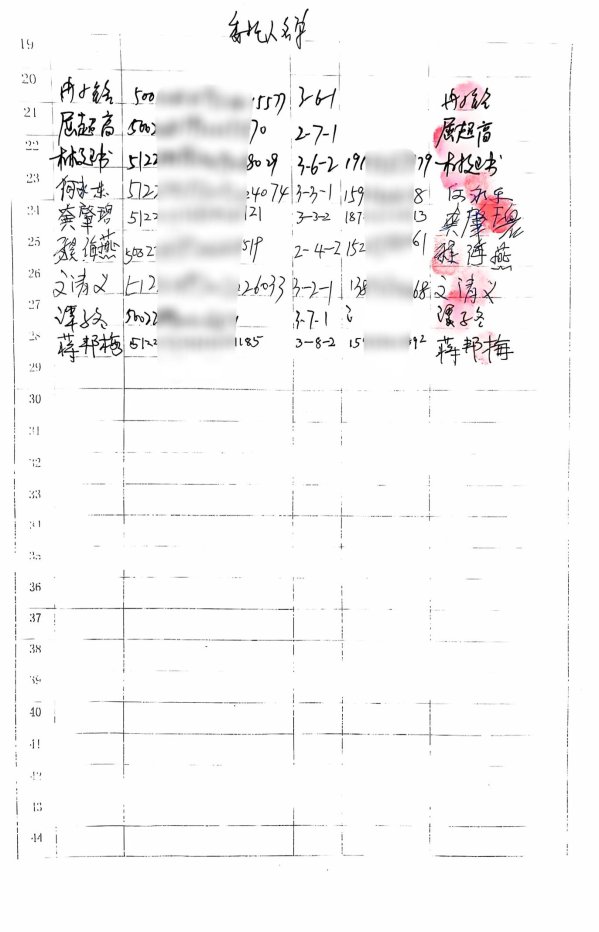 委托人名单
19
20
21 冉 500 5577 3-6-1 冉
22 屈超高 5002 70 2-7-1 屈超高
23 林廷书 5122 8029 3-6-2 191 79 林廷书
24 何永东 5122 4074 3-3-1 159 8 何永东
25 龚肇碧 5122 121 3-3-2 187 13 龚肇碧
26 程海燕 50023 519 2-4-2 152 61 程海燕
27 文清义 5122 26033 3-2-1 138 68 文清义
28 谭子冬 50022 3-7-1 谭子冬
29 蒋邦梅 5122 1185 3-8-2 15 92 蒋邦梅
30
31
32
33
34
35
36
37
38
39
40
41
42
43
44